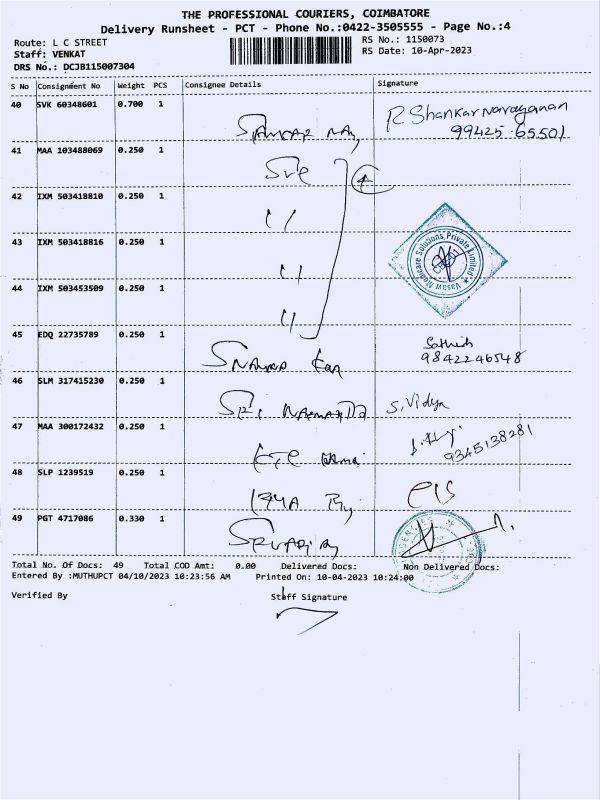 THE PROFESSIONAL COURIERS, COIMBATORE
Delivery Runsheet - PCT - Phone No.:0422-3505555 - Page No.:4
Route: L C STREET
RS No.: 1150073
Staff: VENKAT
RS Date: 10-Apr-2023
DRS No.: DCJB115007304
S No Consignment No Weight PCS Consignee Details Signature
40 SVK 60348601 0.700 1
R Shankar Narayanan
99425 65501
41 MAA 103488069 0.250 1
Sre
42 IXM 503418810 0.250 1
//
43 IXM 503418816 0.250 1
//
Vasaw Medicare Solutions Private Limited
44 IXM 503453509 0.250 1
//
45 EDQ 22735789 0.250 1
Sathish
9842246548
46 SLM 317415230 0.250 1
Sri
S. Vidya
47 MAA 300172432 0.250 1
9345138281
48 SLP 1239519 0.250 1
49 PGT 4717086 0.330 1
Total No. Of Docs: 49 Total COD Amt: 0.00 Delivered Docs: Non Delivered Docs:
Entered By :MUTHUPCT 04/10/2023 10:23:56 AM Printed On: 10-04-2023 10:24:00
Verified By Staff Signature